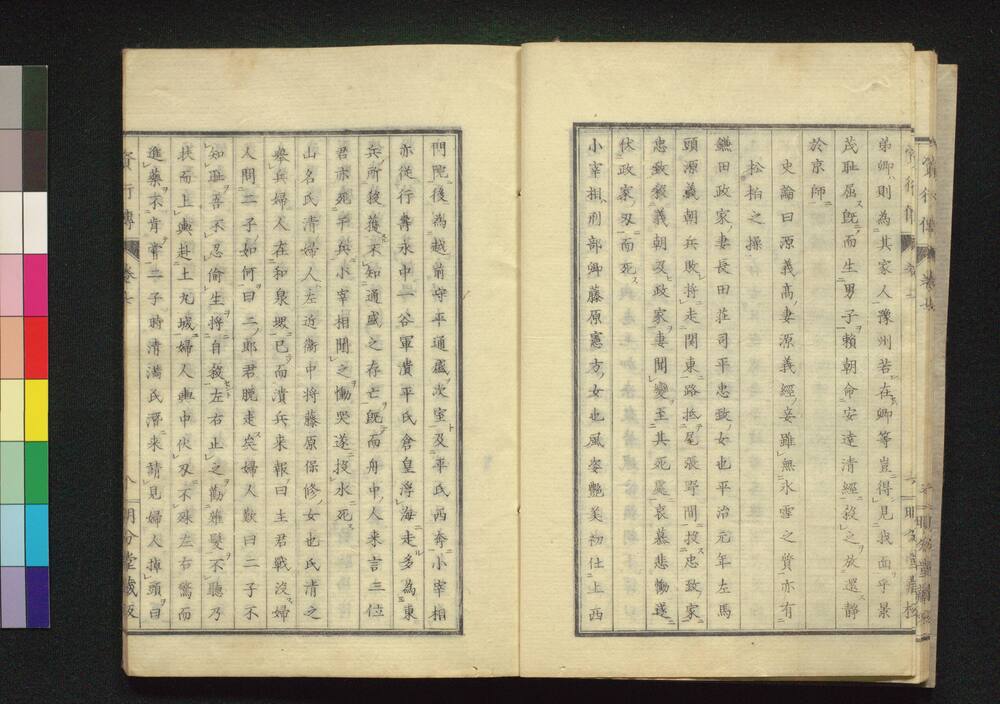 弟卿則為其家人豫州若在卿等豈得見我面乎景
茂耻屈既而生男子頼朝命安達清經殺之放還靜
於京師
史論曰源義高妻源義經妾雖無氷雪之質亦有
松柏之操
鎌田政家妻長田莊司平忠致女也平治元年左馬
頭源義朝兵敗將走関東路抵尾張野間投忠致家
忠致殺義朝及政家妻聞變至其死處哀慕悲慟遂
伏政家刄而死
小宰相刑部卿藤原憲方女也風姿艶美初仕上西
門院後為越前守平通盛次室及平氏西奔小宰相
亦從行壽永中一谷軍潰平氏倉皇浮海走多為東
兵所獲不知通盛之存亡既而舟中人来言三位
君亦死于兵小宰相聞之慟哭遂投水死
山名氏清婦人左近衞中将藤原保修女也氏清之
擧兵婦人在和泉堺已而潰兵来報曰主君戰沒婦
人問二子如何曰二郎君脱走矣婦人歎曰二子不
知耻吾不忍偷生将自殺左右止之勸薙髮不聽乃
扶而上輿赴土丸城婦人輿中伏刄不殊左右驚而
進藥不肯嘗二子時清満氏潛来請見婦人掉頭曰
卷七
八
明分堂藏版